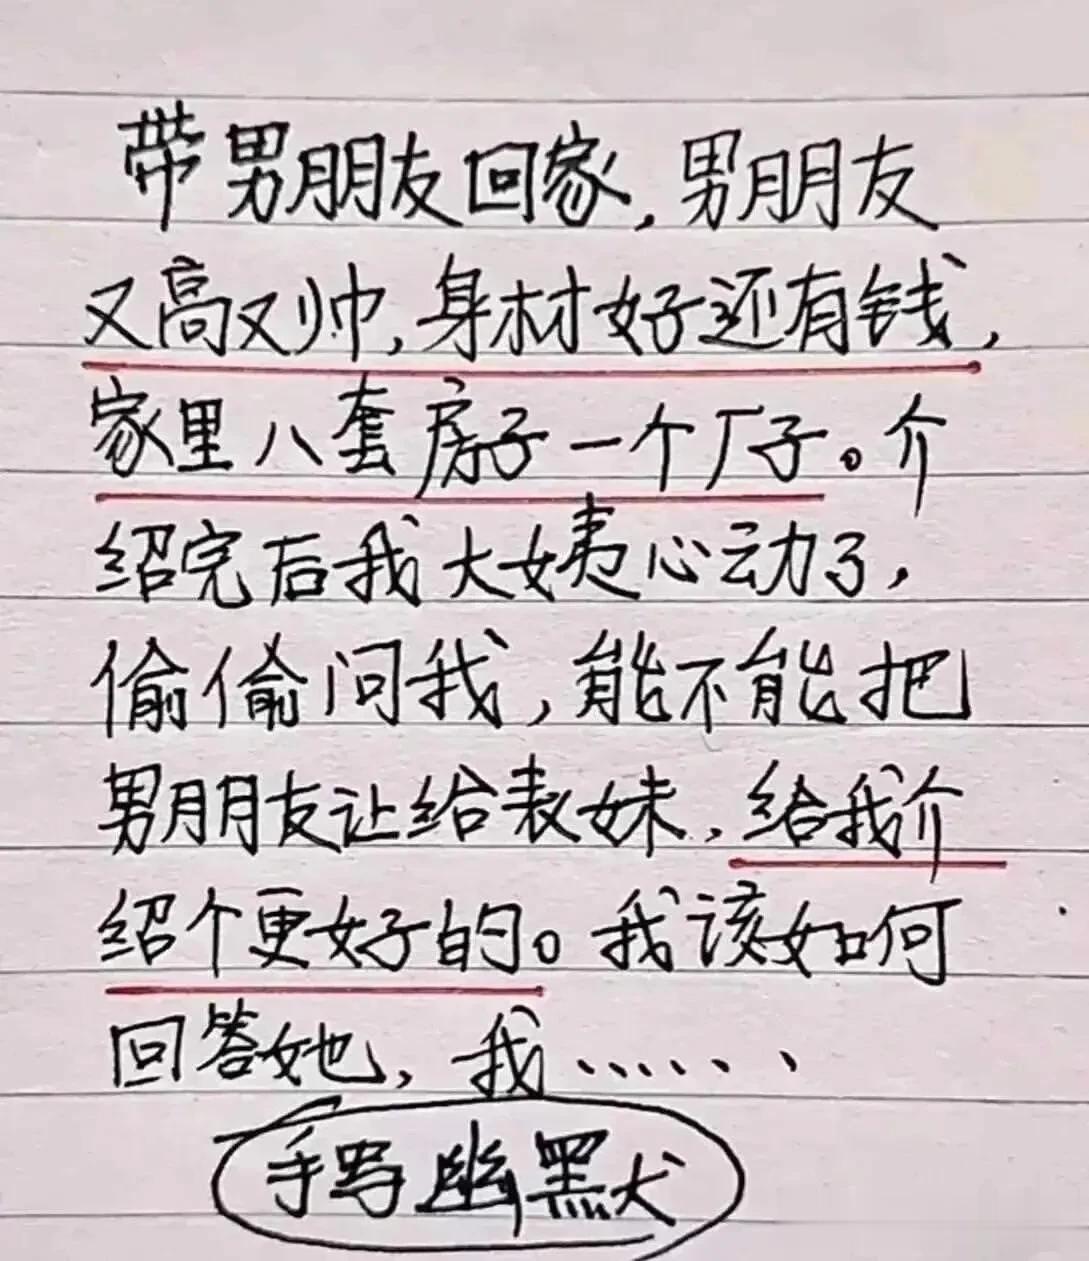 带男朋友回家,男朋友
又高又帅,身材好还有钱,
家里八套房子一个厂子。介
绍完后我大姨心动了,
偷偷问我,能不能把
男朋友让给表妹,给我介
绍个更好的。我该如何
回答她,我......
手写幽默